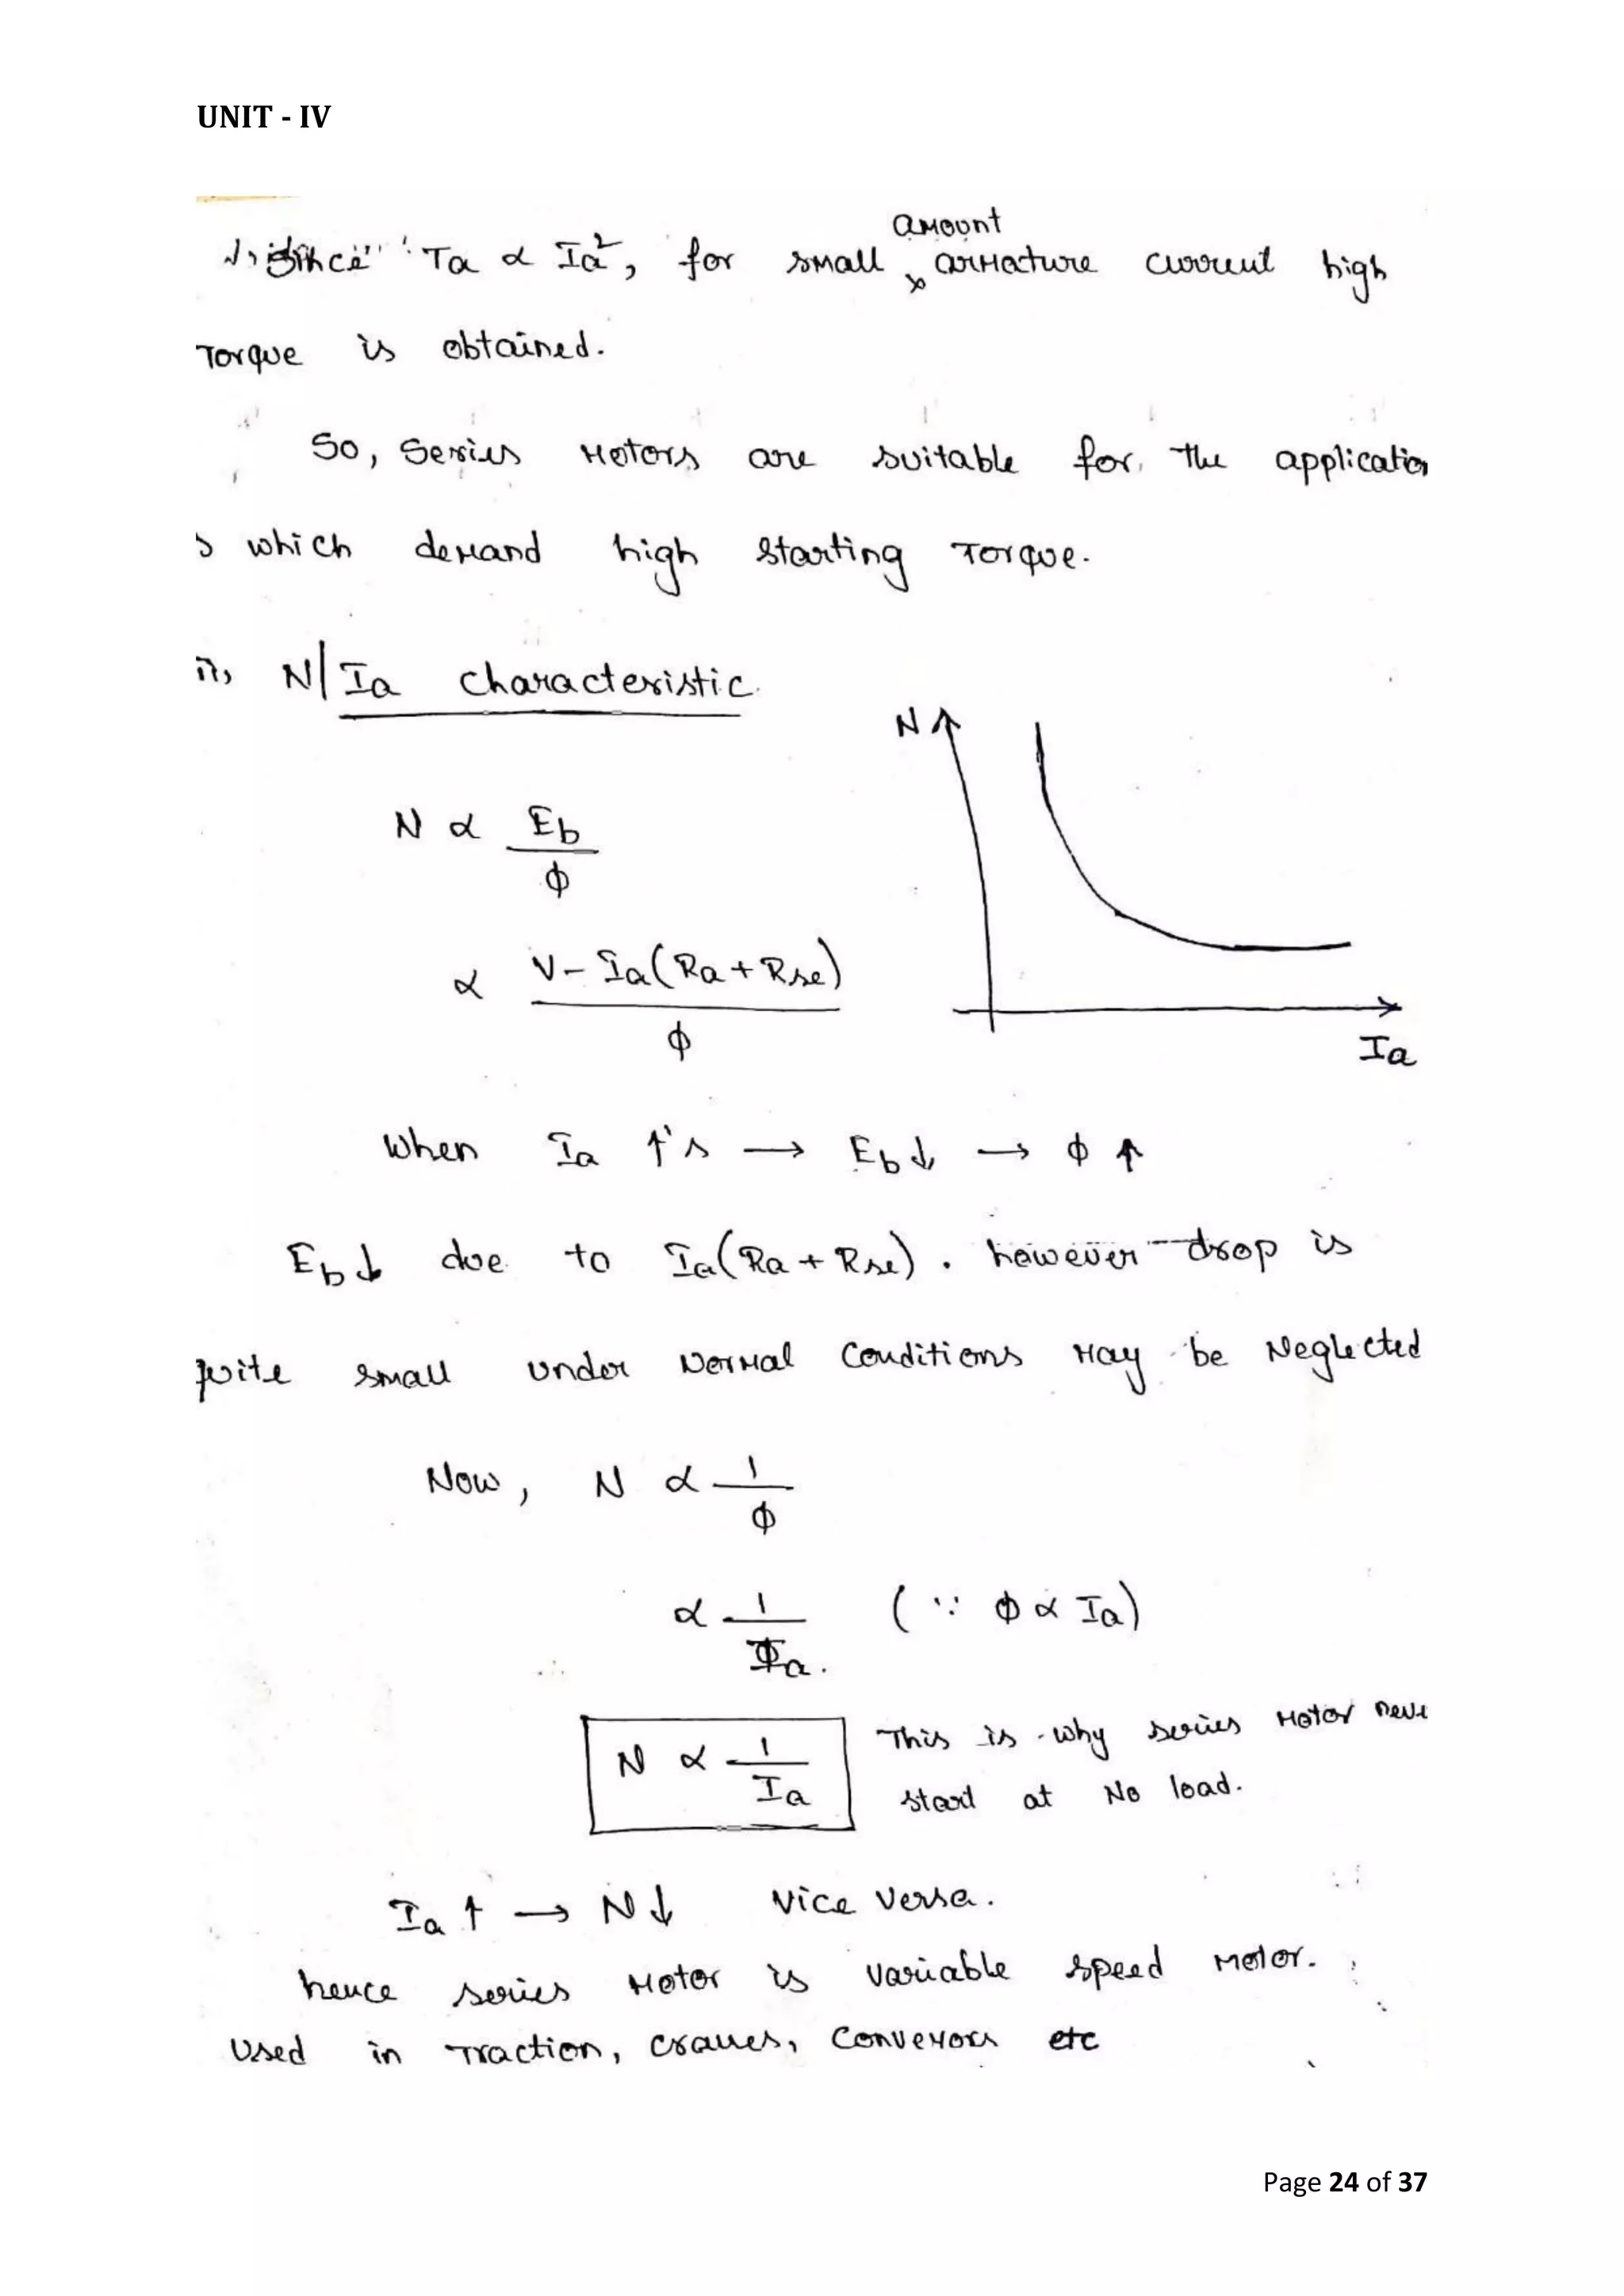 UNIT - IV
amount
Since Ta ∝ Ia², for small armature current high
Torque is obtained.
So, Series Motors are suitable for the application
s which demand high starting Torque.
ii, N/Ia characteristic.
N
N ∝ Eb
ϕ
∝ V - Ia(Ra + Rse)
ϕ
Ia
When Ia ↑'s → Eb↓ → ϕ ↑
Eb↓ due to Ia(Ra + Rse). however drop is
quite small under Normal Conditions May be Neglected
Now, N ∝ 1
ϕ
∝ 1 (∵ ϕ ∝ Ia)
Ia.
N ∝ 1
Ia
This is why series Motor neve
start at No load.
Ia ↑ → N↓ Vice Versa.
hence series Motor is variable speed Motor.
Used in Traction, cranes, Conveyors etc
Page 24 of 37